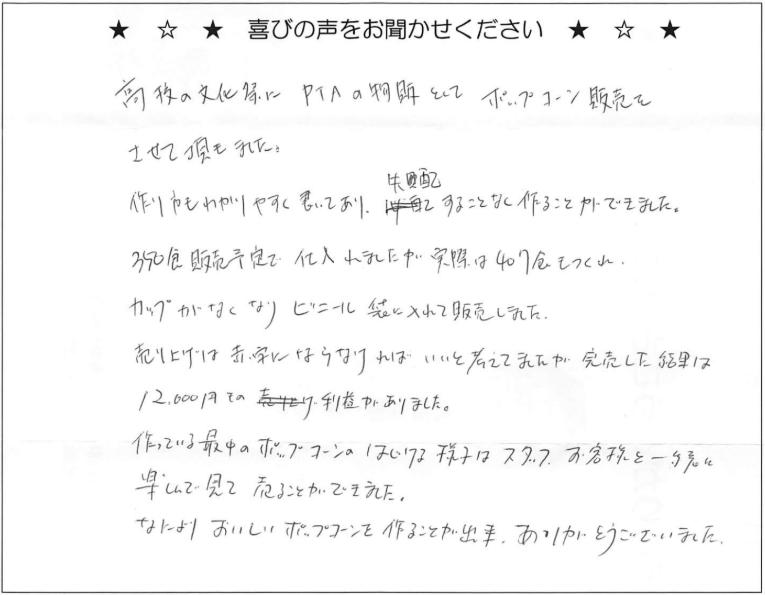 ★ ☆ ★ 喜びの声をお聞かせください ★ ☆ ★
高校の文化祭に PTAの物販として ポップコーン販売を
させて頂きました。
作り方もわかりやすく書いてあり、失敗することなく作ることができました。
350食販売予定で仕入れましたが実際は407食もつくれ、
カップがなくなりビニール袋に入れて販売しました。
売り上げは赤字にならなければいいと考えてましたが完売した結果は
12,000円もの利益がありました。
作っている最中のポップコーンのはじける様子はスタッフ お客様と一緒に
楽しんで見て売ることができました。
なによりおいしいポップコーンを作ることが出来、ありがとうございました。